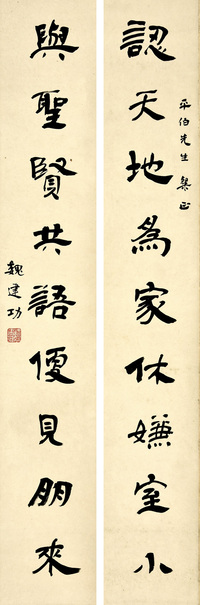 認天地為家休嫌室小
平伯先生粲正
與聖賢共語便見朋來
魏建功